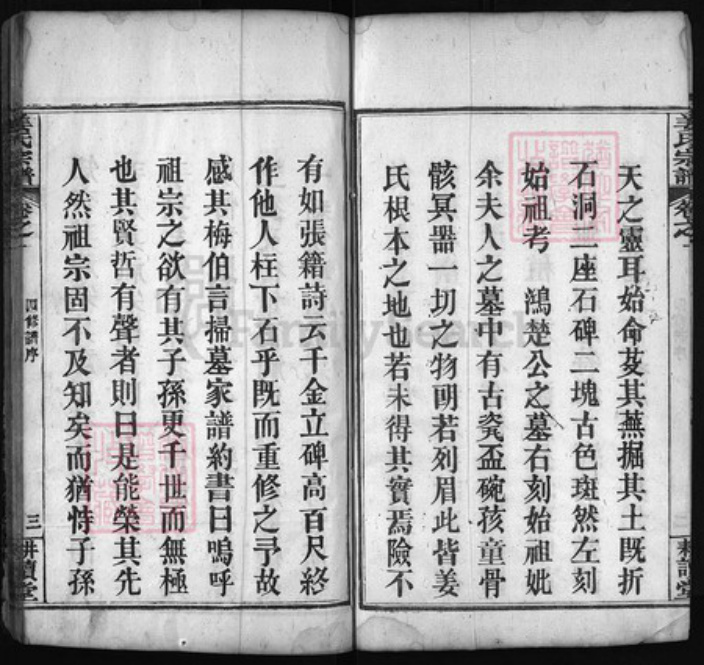 天之靈耳始命芟其蕪掘其土既折
石洞二座石碑二塊古色斑然左刻
始祖考　鴻楚公之墓右刻始祖妣
余夫人之墓中有古瓷盃碗孩童骨
骸冥器一切之物朙若列眉此皆姜
氏根本之地也若未得其實焉險不
有如張籍詩云千金立碑高百尺終
作他人柱下石乎既而重修之予故
感其梅伯言掃墓家譜約書曰嗚呼
祖宗之欲有其子孫更千世而無極
也其賢哲有聲者則曰是能榮其先
人然祖宗固不及知矣而猶恃子孫
姜氏宗譜
卷之一
四修譜序
三
耕讀堂
FamilySearch